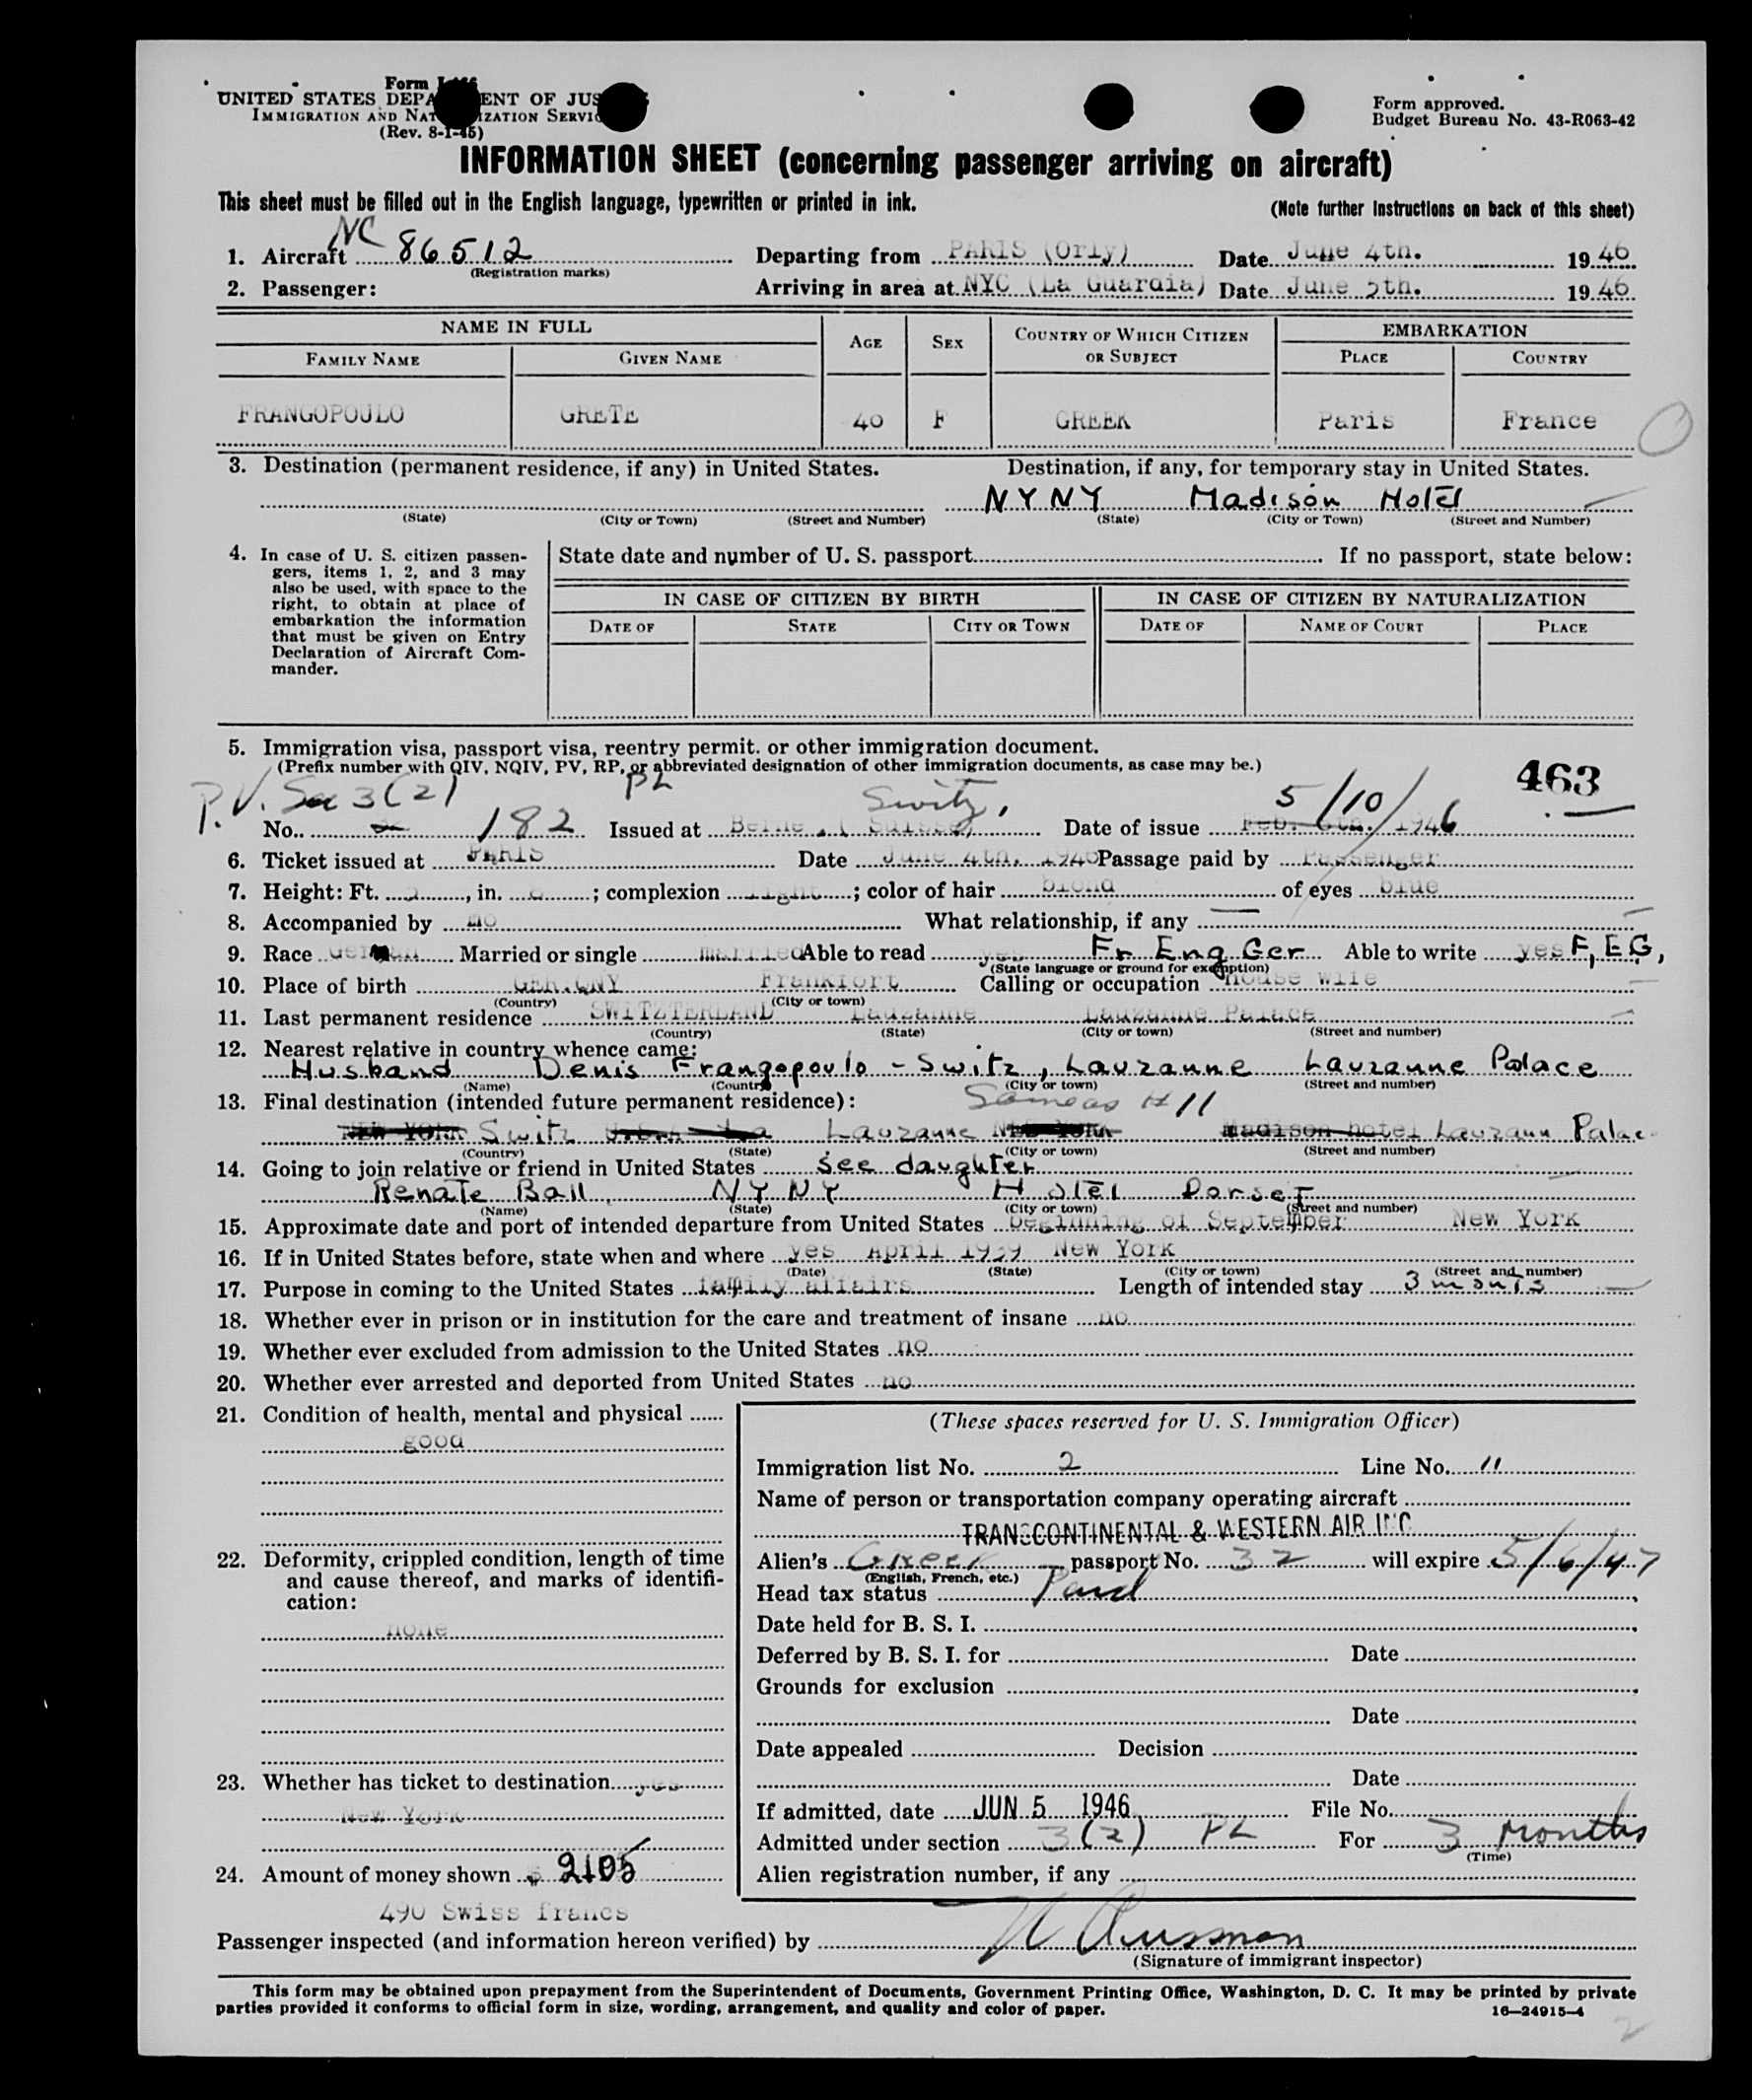 Form I-466
UNITED STATES DEPARTMENT OF JUSTICE
IMMIGRATION AND NATURALIZATION SERVICE
(Rev. 8-1-45)
Form approved.
Budget Bureau No. 43-R063-42
INFORMATION SHEET (concerning passenger arriving on aircraft)
This sheet must be filled out in the English language, typewritten or printed in ink.
(Note further instructions on back of this sheet)
1. Aircraft NC 86512 Departing from PARIS (Orly) Date June 4th. 1946
(Registration marks)
2. Passenger: Arriving in area at NYC (La Guardia) Date June 5th. 1946
NAME IN FULL AGE SEX COUNTRY OF WHICH CITIZEN OR SUBJECT EMBARKATION
FAMILY NAME GIVEN NAME PLACE COUNTRY
FRANGOPOULO GRETE 40 F GREEK Paris France
3. Destination (permanent residence, if any) in United States. Destination, if any, for temporary stay in United States.
NYNY Madison Hotel
(State) (City or Town) (Street and Number) (State) (City or Town) (Street and Number)
4. In case of U. S. citizen passengers, items 1, 2, and 3 may also be used, with space to the right, to obtain at place of embarkation the information that must be given on Entry Declaration of Aircraft Commander.
State date and number of U. S. passport If no passport, state below:
IN CASE OF CITIZEN BY BIRTH IN CASE OF CITIZEN BY NATURALIZATION
DATE OF STATE CITY OR TOWN DATE OF NAME OF COURT PLACE
5. Immigration visa, passport visa, reentry permit. or other immigration document.
(Prefix number with QIV, NQIV, PV, RP, or abbreviated designation of other immigration documents, as case may be.)
463
P.V. Sec 3(2) PL Switz, 5/10/
No. 182 Issued at Berne (Suisse) Date of issue Feb. 6th. 1946
6. Ticket issued at PARIS Date June 4th. 1946 Passage paid by Passenger
7. Height: Ft. 5, in. ; complexion light; color of hair blond of eyes blue
8. Accompanied by no What relationship, if any
9. Race German Married or single married Able to read yes Fr Eng Ger Able to write yes F, E G,
(State language or ground for exemption)
10. Place of birth GERMANY Frankfort Calling or occupation house wife
(Country) (City or town)
11. Last permanent residence SWITZTERLAND Lauzanne Lauzanne Palace
(Country) (State) (City or town) (Street and number)
12. Nearest relative in country whence came:
Husband Denis Frangopoulo - Switz, Lauzanne Lauzanne Palace
(Name) (Country) (City or town) (Street and number)
13. Final destination (intended future permanent residence): Same as #11
NEW YORK Switz Lauzanne NEW YORK Madison hotel Lauzann Palac
(Country) (State) (City or town) (Street and number)
14. Going to join relative or friend in United States see daughter
Renate Ball, NYNY Hotel Dorset
(Name) (State) (City or town) (Street and number)
15. Approximate date and port of intended departure from United States beginning of September New York
16. If in United States before, state when and where yes April 1939 New York
(Date) (State) (City or town) (Street and number)
17. Purpose in coming to the United States family affairs Length of intended stay 3 monts
18. Whether ever in prison or in institution for the care and treatment of insane no
19. Whether ever excluded from admission to the United States no
20. Whether ever arrested and deported from United States no
21. Condition of health, mental and physical
good
22. Deformity, crippled condition, length of time and cause thereof, and marks of identification:
none
23. Whether has ticket to destination yes
New York
24. Amount of money shown $ 2105
490 Swiss francs
(These spaces reserved for U. S. Immigration Officer)
Immigration list No. 2 Line No. 11
Name of person or transportation company operating aircraft
TRANSCONTINENTAL & WESTERN AIR INC
Alien's Greek passport No. 32 will expire 5/6/47
(English, French, etc.)
Head tax status Paid
Date held for B. S. I.
Deferred by B. S. I. for Date
Grounds for exclusion
Date
Date appealed Decision
Date
If admitted, date JUN 5 1946 File No.
Admitted under section 3(2) PL For 3 months
(Time)
Alien registration number, if any
Passenger inspected (and information hereon verified) by
(Signature of immigrant inspector)
This form may be obtained upon prepayment from the Superintendent of Documents, Government Printing Office, Washington, D. C. It may be printed by private
parties provided it conforms to official form in size, wording, arrangement, and quality and color of paper.
16—24915-4
2